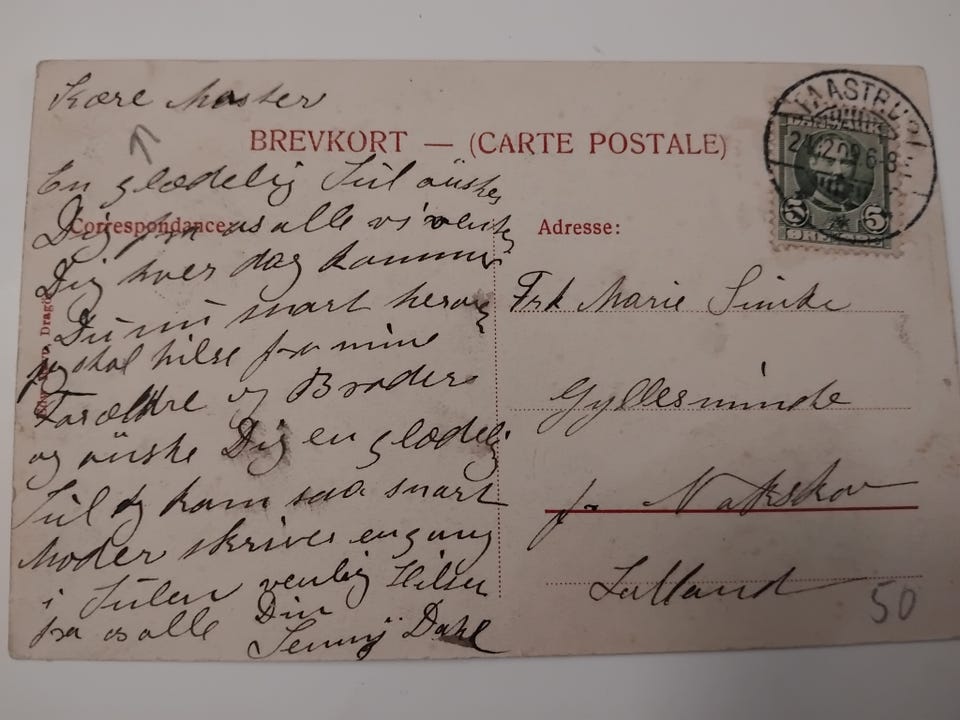 Kære Moster
BREVKORT — (CARTE POSTALE)
En glædelig Jul ønskes
Correspondance:
Dig fra os alle vi venter
Dig hver dag kommer
Du nu snart herover
jeg skal hilse fra mine
Forældre og Brødre
og ønske Dig en glædelig
Jul og kom saa snart
Moder skriver engang
i Julen venlig Hilsen
fra os alle Din
Jenny Dahl
TAASTRUP
24.12.09 6-8
DANMARK
5 5
Adresse:
Frk Marie Simke
Gyllesminde
pr Nakskov
Lolland
50
Dragør